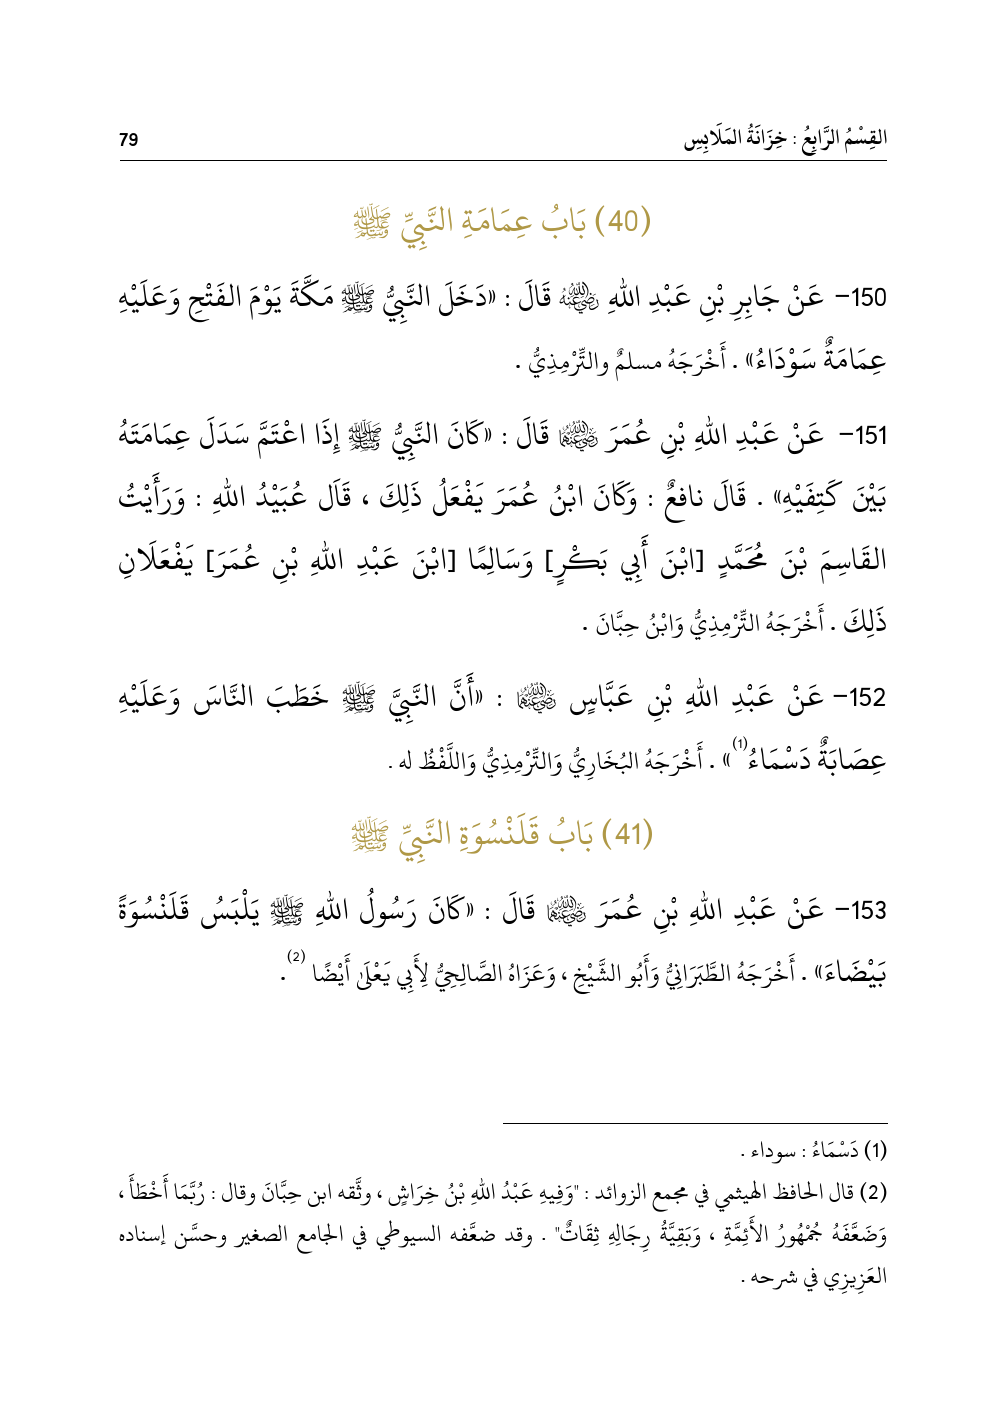 القِسْمُ الرَّابِعُ : خِزَانَةُ المَلَابِسِ 79
(40) بَابُ عِمَامَةِ النَّبِيِّ ﷺ
150- عَنْ جَابِرِ بْنِ عَبْدِ اللهِ رضي الله عنه قَالَ : «دَخَلَ النَّبِيُّ ﷺ مَكَّةَ يَوْمَ الفَتْحِ وَعَلَيْهِ
عِمَامَةٌ سَوْدَاءُ» . أَخْرَجَهُ مسلمٌ والتِّرْمِذِيُّ .
151- عَنْ عَبْدِ اللهِ بْنِ عُمَرَ رضي الله عنهما قَالَ : «كَانَ النَّبِيُّ ﷺ إِذَا اعْتَمَّ سَدَلَ عِمَامَتَهُ
بَيْنَ كَتِفَيْهِ» . قَالَ نافعٌ : وَكَانَ ابْنُ عُمَرَ يَفْعَلُ ذَلِكَ ، قَاَل عُبَيْدُ اللهِ : وَرَأَيْتُ
القَاسِمَ بْنَ مُحَمَّدٍ [ابْنَ أَبِي بَكْرٍ] وَسَالِمًا [ابْنَ عَبْدِ اللهِ بْنِ عُمَرَ] يَفْعَلَانِ
ذَلِكَ . أَخْرَجَهُ التِّرْمِذِيُّ وَابْنُ حِبَّانَ .
152- عَنْ عَبْدِ اللهِ بْنِ عَبَّاسٍ رضي الله عنهما : «أَنَّ النَّبِيَّ ﷺ خَطَبَ النَّاسَ وَعَلَيْهِ
عِصَابَةٌ دَسْمَاءُ(1)» . أَخْرَجَهُ البُخَارِيُّ وَالتِّرْمِذِيُّ وَاللَّفْظُ له .
(41) بَابُ قَلَنْسُوَةِ النَّبِيِّ ﷺ
153- عَنْ عَبْدِ اللهِ بْنِ عُمَرَ رضي الله عنهما قَالَ : «كَانَ رَسُولُ اللهِ ﷺ يَلْبَسُ قَلَنْسُوَةً
بَيْضَاءَ» . أَخْرَجَهُ الطَّبَرَانِيُّ وَأَبُو الشَّيْخِ ، وَعَزَاهُ الصَّالِحِيُّ لِأَبِي يَعْلَىٰ أَيْضًا (2) .
(1) دَسْمَاءُ : سوداء .
(2) قال الحافظ الهيثمي في مجمع الزوائد : "وَفِيهِ عَبْدُ اللهِ بْنُ خِرَاشٍ ، وثَّقه ابن حِبَّانَ وقال : رُبَّمَا أَخْطَأَ ،
وَضَعَّفَهُ جُمْهُورُ الأَئِمَّةِ ، وَبَقِيَّةُ رِجَالِهِ ثِقَاتٌ" . وقد ضعَّفه السيوطي في الجامع الصغير وحسَّن إسناده
العَزِيزِي في شرحه .